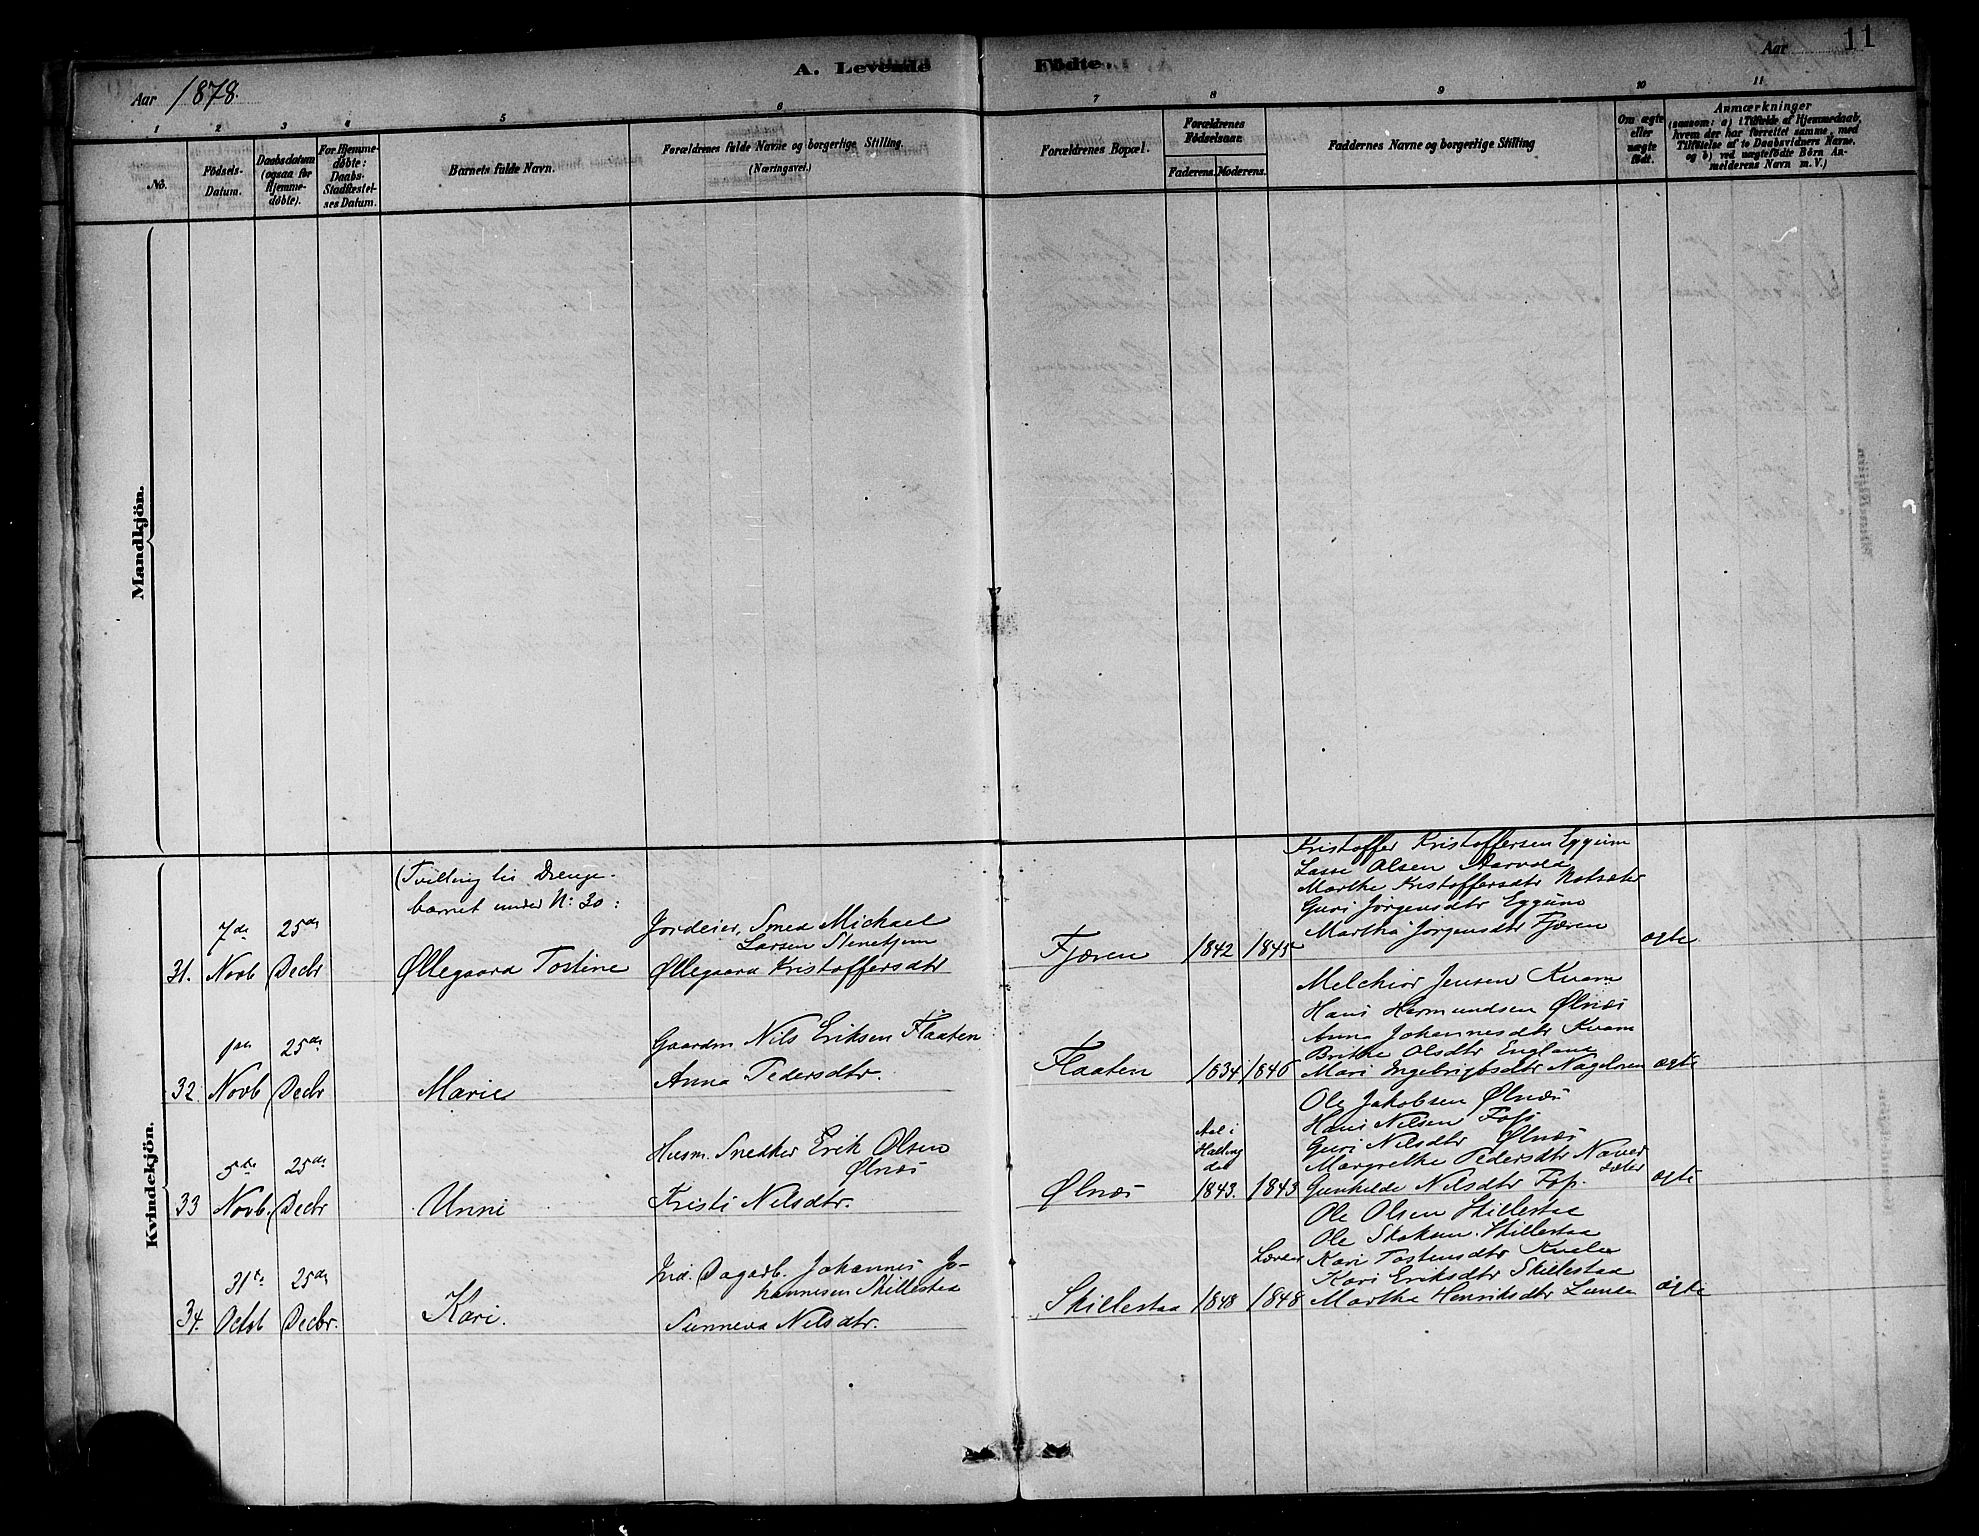 11
A. Levende Fødte.
Aar 1878.
Aar
1 2 3 4 5 6 7 8 9 10 11
No.
Födsels-
Datum.
Daabsdatum
(ogsaa for
Hjemme-
døbte).
For Hjemme-
døbte:
Daabs-
Stadfæstel-
ses Datum.
Barnets fulde Navn.
Forældrenes fulde Navne og borgerlige Stilling.
(Næringsvei.)
Forældrenes Bopæl.
Forældrenes
Födselsaar.
Faderens. Moderens.
Faddernes Navne og borgerlige Stilling
Om ægte
eller
uægte
født.
Anmærkninger
(saasom: a) i Tilfælde af Hjemmedaab,
hvem der har forrettet samme, med
Tilföielse af to Daabsvidners Navne,
og b) ved uægtefödte Börn An-
melderens Navn m. V.)
Mandkjön.
Kvindekjön.
(Tvilling til Drenge-
barnet under N: 30:
31.
7de
Novb
25de
Decbr
Øllegaard Tostine
Jordeier, Smed Michael
Larsen Stenehjem
Øllegaard Kristoffersdtr
Fjæren
1842
1845
Kristoffer Kristoffersen Eggum
Lasse Olsen Aarvold
Marthe Kristoffersdtr
Guri Jørgensdtr Eggum
Martha Jørgensdtr Fjæren
ægte
32.
Novb
25de
Decbr
Marie
Gaardm Nils Eriksen Flaaten
Anna Pedersdtr.
Flaaten
1834
1846
Melchior Jensen Kvam
Hans Hermundsen Ølnæs
Anna Johannesdtr Kvam
Brithe Olsdtr England
Mari Ingebrigtsdtr
ægte
33
5te
Novb.
25de
Decbr
Unni
Husm. Snedker Erik Olsen
Ølnæs
Kristi Nilsdtr.
Ølnæs
Aal i
Halling
dal
1843.
1843
Ole Jakobsen Ølnæs
Hans Nilsen Foss
Guri Nilsdtr Ølnæs
Margrethe Pedersdtr Næver
sæter
Gunhilde Nilsdtr Foss.
ægte
34.
31te
Octob
25de
Decbr.
Kari.
Ind. Dagarb. Johannes Jo-
hannesen Skillestaa
Sunneva Nilsdtr.
Skillestaa
1848
Lærdal
1848
Ole Olsen Skillestaa
Ole Skillestaa
Kari Tostensdtr
Kari Eriksdtr Skillestaa
Marthe Henriksdtr
ægte